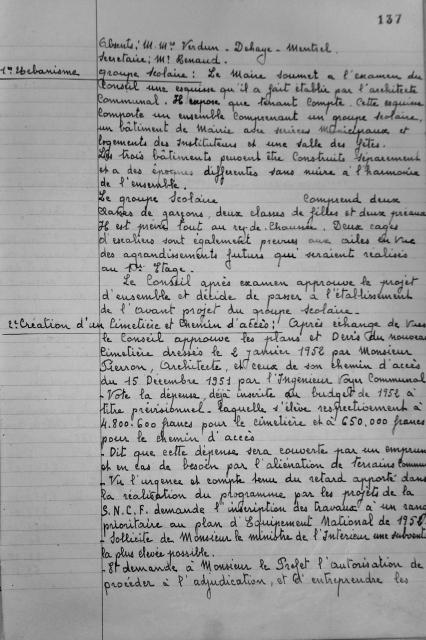 137
Absents; M. Mrs Verdun - Dehaye - Mentiel.
Secretaire; Mr Renaud.
1º Urbanisme groupe scolaire : Le Maire soumet a l'examen du
Conseil une esquisse qu'il a fait établir par l'architecte
Communal. Il expose que tenant compte. Cette esquisse
comporte un ensemble comprenant un groupe scolaire,
un bâtiment de Mairie avec services Municipaux et
logements des Instituteurs et une salle des fêtes.
Les trois bâtiments peuvent être Construits séparement
et a des époques differentes sans nuire à l'harmonie
de l'ensemble.
Le groupe scolaire comprend deux
classes de garçons, deux classes de filles et deux préaux
Il est prévu tout au rez-de-Chaussée. Deux cages
d'escaliers sont également prévues aux ailes en vue
des agrandissements futurs qui seraient réalisés
au 1er Etage.
Le Conseil après examen approuve le projet
d'ensemble et décide de passer à l'établissement
de l'avant projet du groupe scolaire.
2º Création d'un Cimetière et Chemin d'accès; Après échange de vues
le Conseil approuve les plans et Devis du nouveau
Cimetière dressés le 2 janvier 1952 par Monsieur
Pierron, Architecte, et ceux de son chemin d'accès
du 15 Décembre 1951 par l'Ingenieur Voyer Communal
- Vote la dépense, déjà inscrite au budget de 1952 à
titre prévisionnel, laquelle s'élève respectivement à
4.800.600 francs pour le cimetière et à 650.000 francs
pour le chemin d'accès
- Dit que cette dépense sera couverte par un emprunt
et en cas de besoin par l'aliénation de terrains commu
- Vu l'urgence et compte tenu du retard apporté dans
la réalisation du programme par les projets de la
S.N.C.F. demande l'inscription des travaux à un rang
prioritaire au plan d'Equipement National de 1952
- Sollicite de Monsieur le ministre de l'Interieur une subvent
la plus elevée possible.
- Et demande à Monsieur le Préfet l'autorisation de
procéder à l'adjudication, et d'entreprendre les